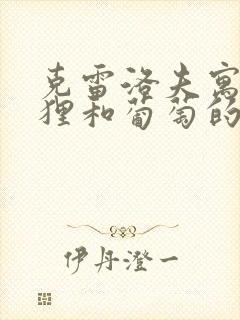 克雷洛夫寓
狸和葡萄的
伊丹澄一